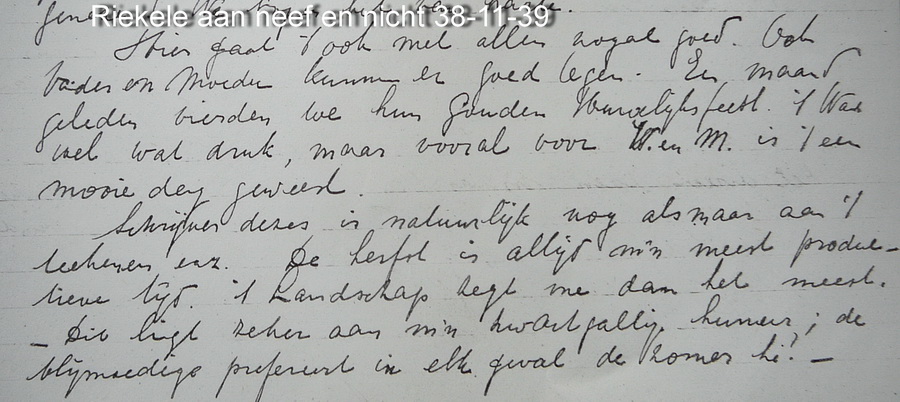 Riekele aan neef en nicht 38-11-39
Hier gaat 't ook met allen nogal goed. Ook
Vader en Moeder kunnen er goed tegen. Een maand
geleden vierden we hun Gouden Huwelijksfeest. 't Was
wel wat druk, maar vooral voor V. en M. is 't een
mooie dag geweest.
Schrijver dezes is natuurlijk nog alsmaar aan 't
teekenen enz. De herfst is altijd m'n meest produc-
tieve tijd. 't Landschap zegt me dan het meest.
– Dit ligt zeker aan m'n zwartgallig humeur; de
blijmoedige prefereert in elk geval de zomer hè? –